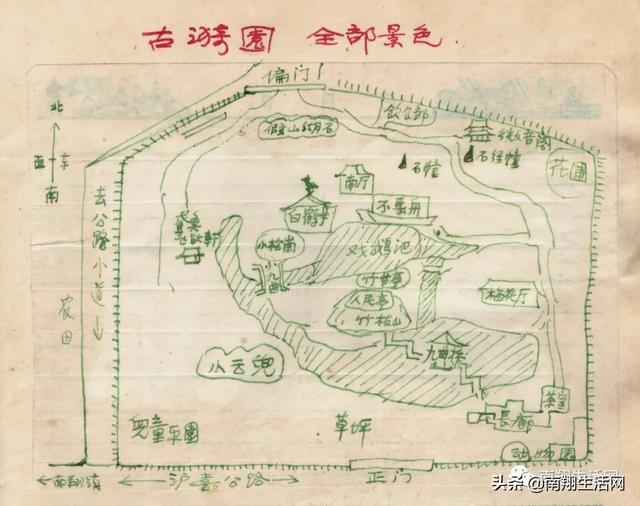 古漪園 全部景色
偏门
北
西 东
南
假山湖石
飲食部
微音阁
石经幢
石幢
花圃
南厅
白鹤亭
不系舟
小松崗
戏鹅池
小九曲
竹枝山
人民亭
梅花厅
九曲桥
小云兜
去公路小道
农田
茶室
長廊
兒童乐園
草坪
动物園
南翔镇
沪嘉公路
正门
南翔生活网
头条 @南翔生活网